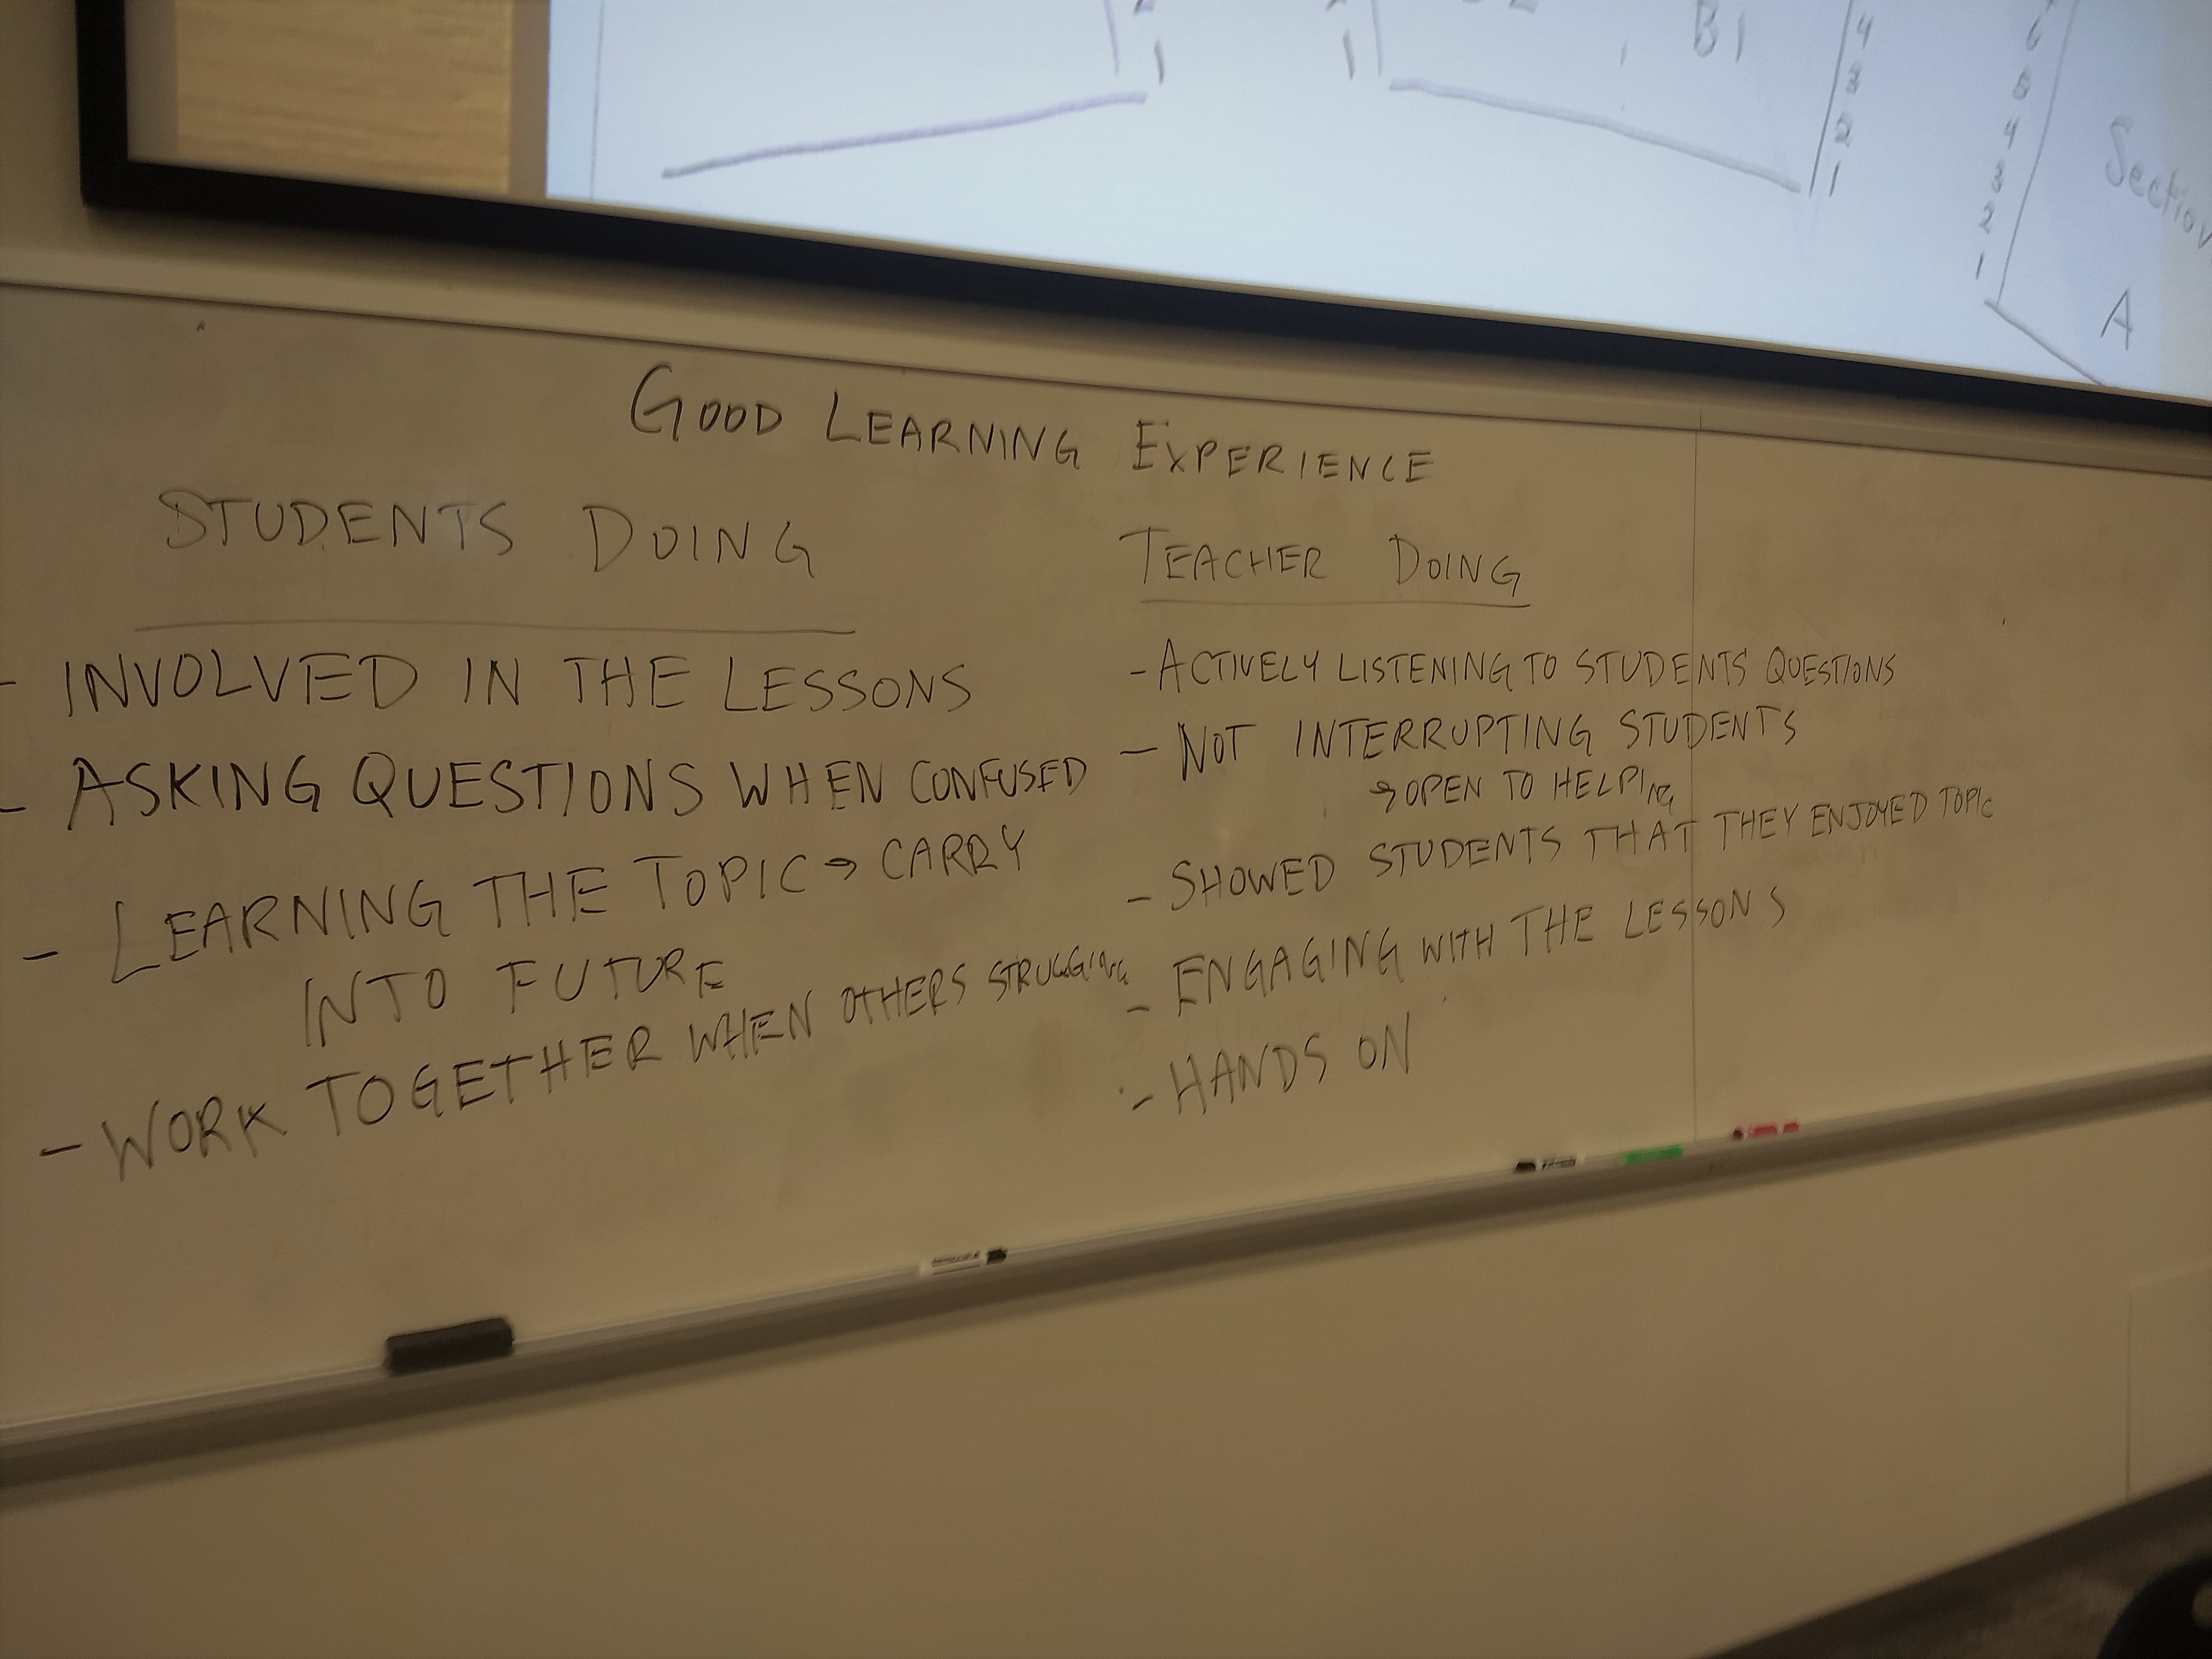 B1
1
1
4
3
2
1
6
5
4
3
2
1
Section
A
GOOD LEARNING EXPERIENCE
STUDENTS DOING
- INVOLVED IN THE LESSONS
- ASKING QUESTIONS WHEN CONFUSED
- LEARNING THE TOPIC → CARRY
INTO FUTURE
- WORK TOGETHER WHEN OTHERS STRUGGLING
TEACHER DOING
- ACTIVELY LISTENING TO STUDENTS' QUESTIONS
- NOT INTERRUPTING STUDENTS
→ OPEN TO HELPING
- SHOWED STUDENTS THAT THEY ENJOYED TOPIC
- ENGAGING WITH THE LESSONS
- HANDS ON